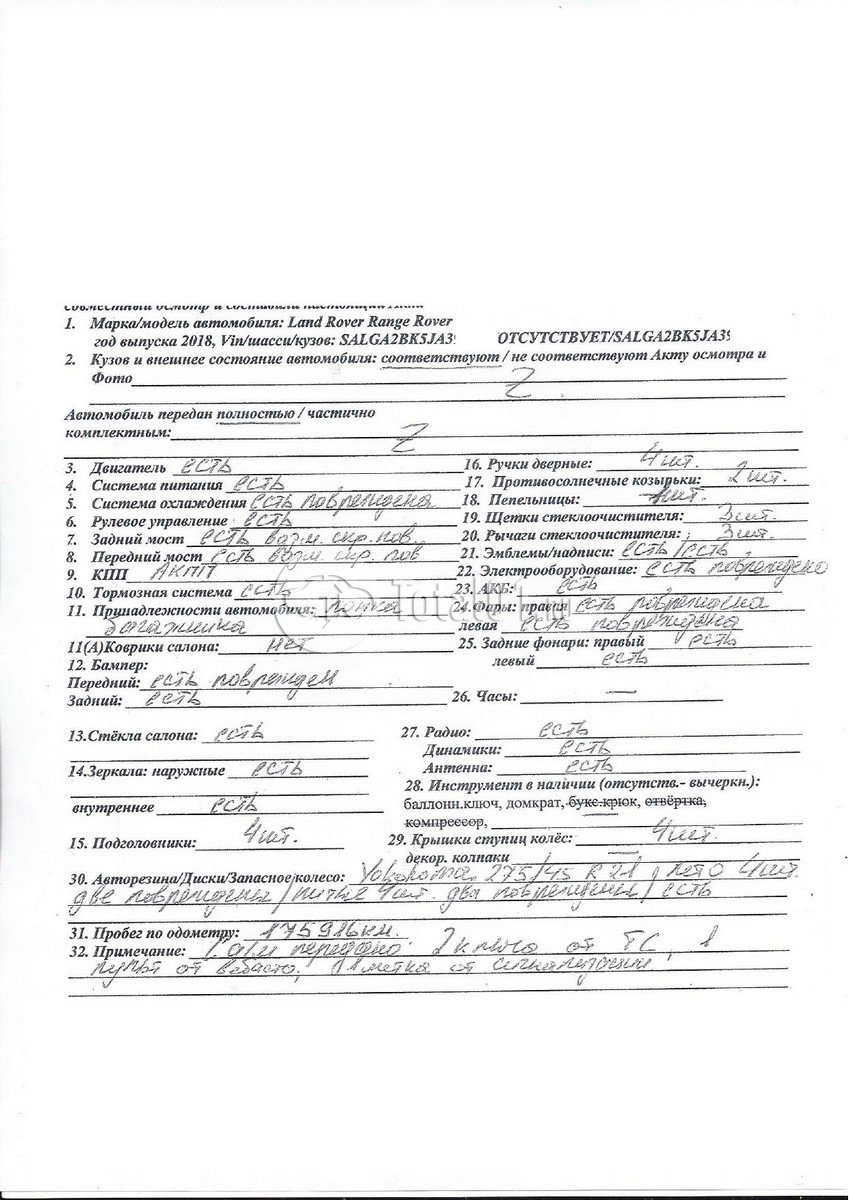 совместный осмотр и составили настоящий Акт:
1. Марка/модель автомобиля: Land Rover Range Rover
год выпуска 2018, Vin/шасси/кузов: SALGA2BK5JA3 ОТСУТСТВУЕТ/SALGA2BK5JA39
2. Кузов и внешнее состояние автомобиля: соответствуют / не соответствуют Акту осмотра и
Фото Z
Автомобиль передан полностью / частично
комплектным: Z
3. Двигатель есть
4. Система питания есть
5. Система охлаждения есть повреждена
6. Рулевое управление есть
7. Задний мост есть возм. скр. пов.
8. Передний мост есть возм. скр. пов
9. КПП АКПП
10. Тормозная система есть
11. Принадлежности автомобиля: полка
багажника
11(А)Коврики салона: нет
12. Бампер:
Передний: есть поврежден
Задний: есть
13.Стёкла салона: есть
14.Зеркала: наружные есть
внутреннее есть
15. Подголовники: 4шт.
16. Ручки дверные: 4шт.
17. Противосолнечные козырьки: 2шт.
18. Пепельницы: 1шт.
19. Щетки стеклоочистителя: 3шт.
20. Рычаги стеклоочистителя: 3шт.
21. Эмблемы/надписи: есть/есть
22. Электрооборудование: есть повреждено
23. АКБ: есть
24.Фары: правая есть повреждена
левая есть повреждена
25. Задние фонари: правый есть
левый есть
26. Часы: —
27. Радио: есть
Динамики: есть
Антенна: есть
28. Инструмент в наличии (отсутств.- вычеркн.):
баллонн.ключ, домкрат, букс.крюк, отвёртка,
компрессор,
29. Крышки ступиц колёс: 4шт.
декор. колпаки —
30. Авторезина/Диски/Запасное колесо: Yokohama 275/45 R21, лето 4шт.
две повреждены/литые 4шт. два повреждены/есть
31. Пробег по одометру: 175916км.
32. Примечание: С а/м передано: 2 ключа от ТС, 1
пульт от вебасто, 1 метка от сигнализации
Total01.ru